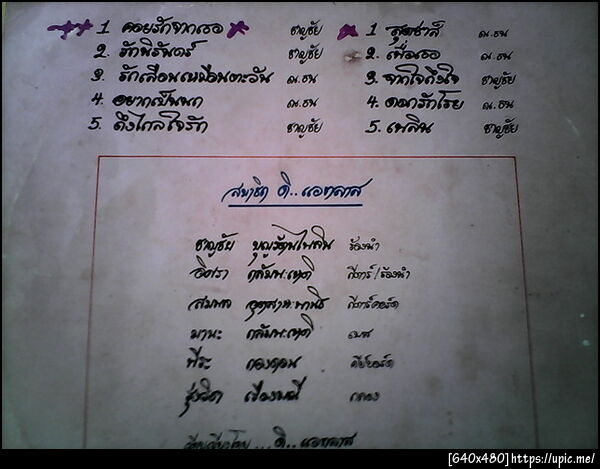 1 คอยรักจากเธอ ชาญชัย
2. รักนิรันดร์ ชาญชัย
3 รักเลือนเหมือนตะวัน ณ.ธน
4. อยากเป็นนก ณ.ธน
5. ถึงไกลใจรัก ชาญชัย
1 สุดซาส์ ณ.ธน
2. เพื่อเธอ ณ.ธน
3. จากใจถึงใจ ชาญชัย
4. ดนตรีรัก ณ.ธน
5. เพลิน ชาญชัย
สมาชิก ดิ..แอตลาส
ชาญชัย บุญรัตนไพลิน ร้องนำ
อิศรา กลัมพะเหติ กีตาร์/ร้องนำ
สมพล กีตาร์คอร์ด
มานะ กลัมพะเหติ เบส
พีระ กองดอน คีย์บอร์ด
รุ่งวิดา เรืองมณี กลอง
เรียบเรียงโดย ... ดิ..แอตลาส
[640x480]https://upic.me/